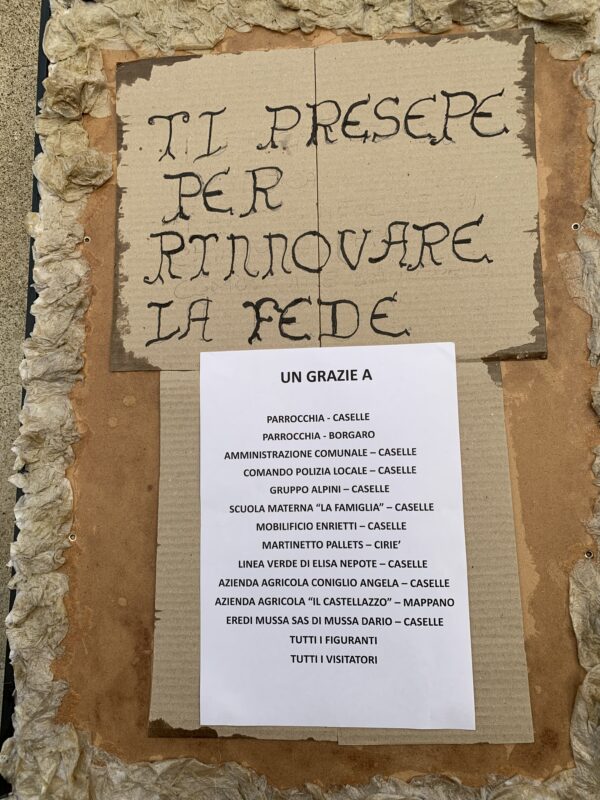 TI PRESEPE
PER
RINNOVARE
LA FEDE
UN GRAZIE A
PARROCCHIA - CASELLE
PARROCCHIA - BORGARO
AMMINISTRAZIONE COMUNALE – CASELLE
COMANDO POLIZIA LOCALE – CASELLE
GRUPPO ALPINI – CASELLE
SCUOLA MATERNA “LA FAMIGLIA” – CASELLE
MOBILIFICIO ENRIETTI – CASELLE
MARTINETTO PALLETS – CIRIE’
LINEA VERDE DI ELISA NEPOTE – CASELLE
AZIENDA AGRICOLA CONIGLIO ANGELA – CASELLE
AZIENDA AGRICOLA “IL CASTELLAZZO” – MAPPANO
EREDI MUSSA SAS DI MUSSA DARIO – CASELLE
TUTTI I FIGURANTI
TUTTI I VISITATORI